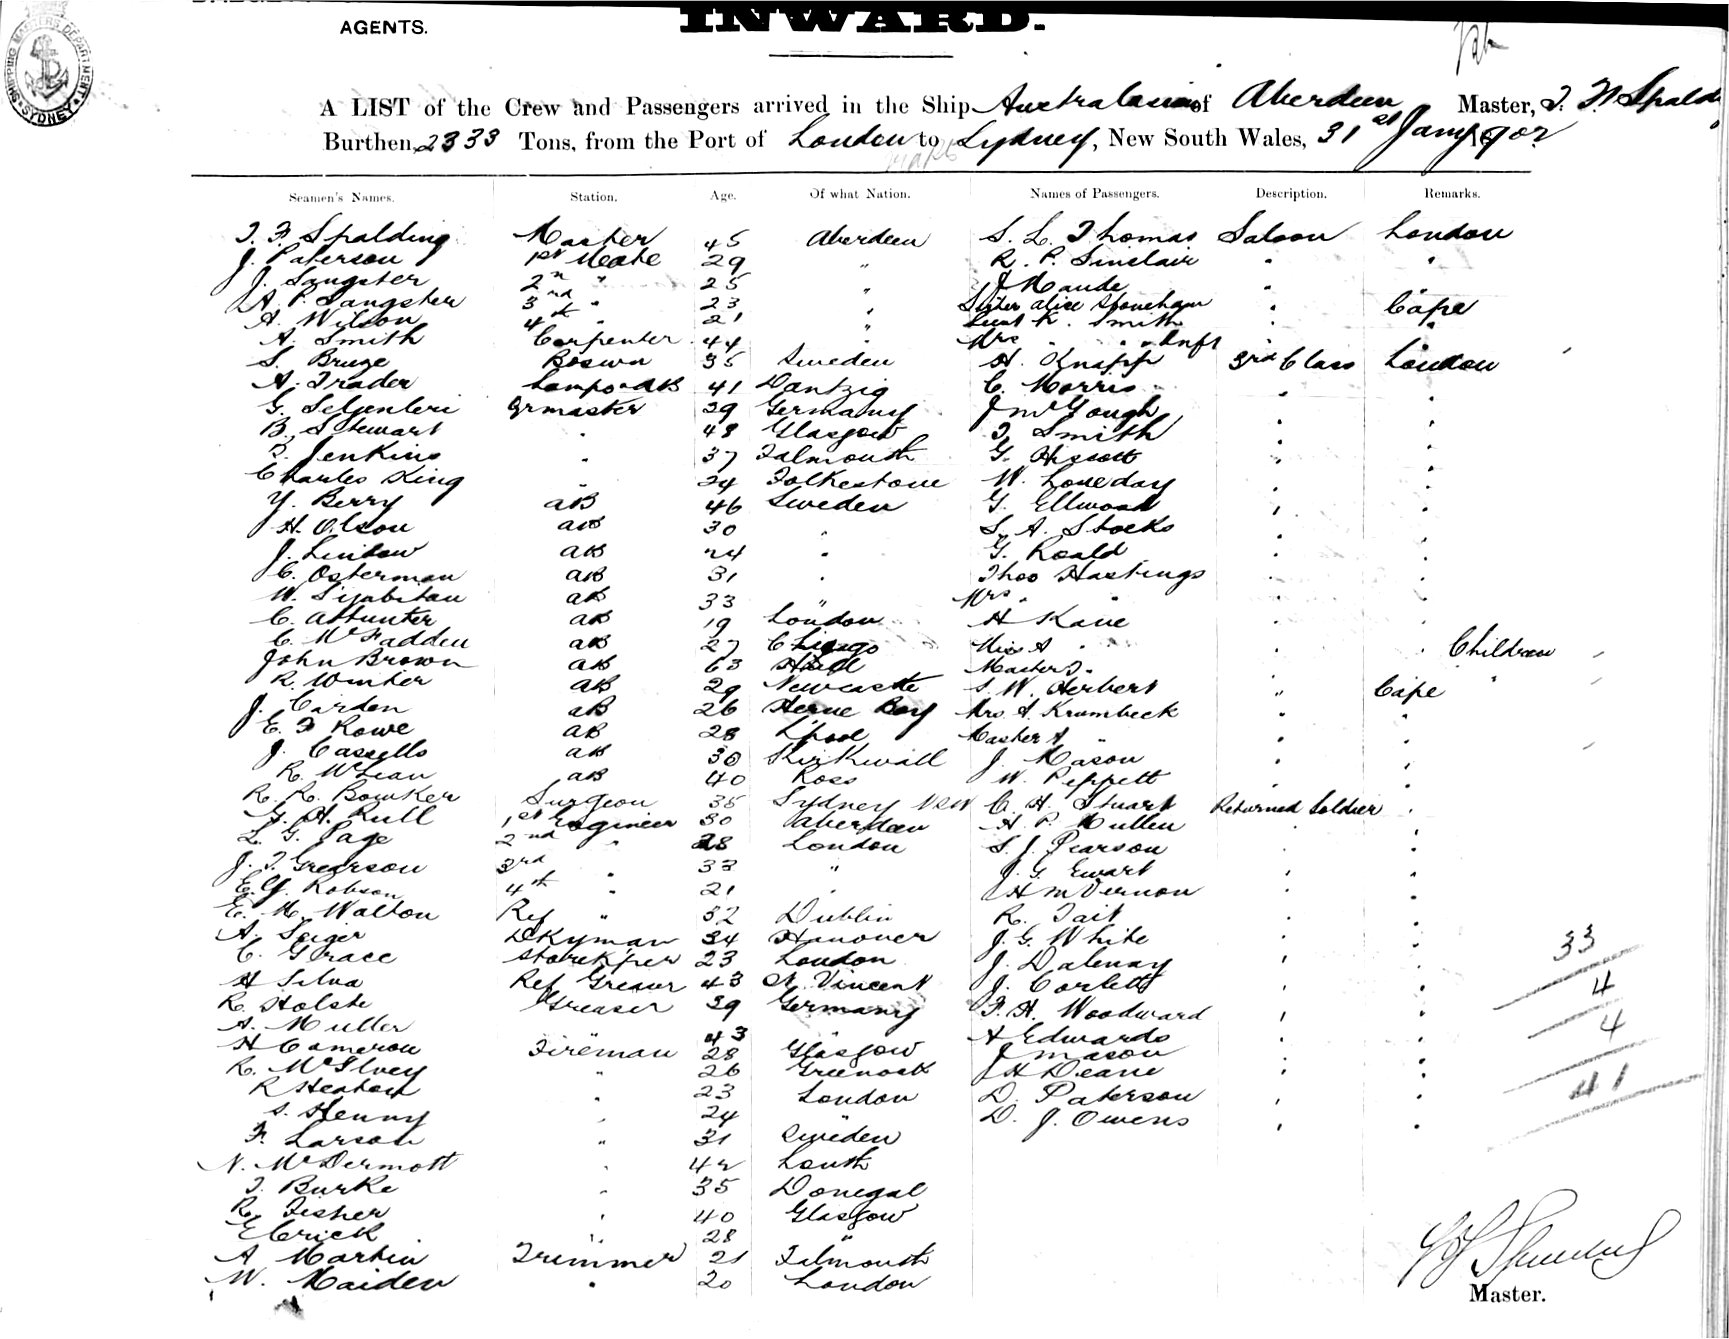 AGENTS.
INWARD.
SHIPPING MASTERS DEPARTMENT SYDNEY
A LIST of the Crew and Passengers arrived in the Ship Australasian of Aberdeen Master, T. F. Spald
Burthen, 2333 Tons, from the Port of London to Sydney, New South Wales, 31st Jany 1902
Seamen's Names. Station. Age. Of what Nation. Names of Passengers. Description. Remarks.
T. F. Spalding Master 45 Aberdeen S. L. Thomas Saloon London
J. Paterson 1st Mate 29 " R. P. Sinclair " "
J. Sangster 2nd " 25 " J Maude "
A. P. Sangster 3rd " 23 " Sister Alice Stoneham " Cape
A. Wilson 4th " 21 " Lieut K. Smith " "
A. Smith Carpenter 44 " Mrs " "
S. Bruze Boswn 35 Sweden H. Knapp 3rd Class London
A. Trader Lamps & AB 41 Dantzig C. Morris " "
G. Qrmaster 39 Germany J McGough " "
B. Stewart " 48 Glasgow T. Smith " "
R. Jenkins " 37 Falmouth G. " "
Charles King " 24 Folkestone W. Loveday " "
Y. Berry AB 46 Sweden G. Ellwood " "
H. Olson AB 30 " S. A. Stocks " "
J. AB 24 " G. Roald " "
C. Osterman AB 31 " Thos Hastings " "
W. AB 33 " Mrs " " "
C. Attunter AB 19 London H Kane " "
C. McFadden AB 27 Chicago Miss A " " " Children
John Brown AB 63 Hull Master J. "
R. Winter AB 29 Newcastle S. W. Herbert " Cape "
J. Carden AB 26 Herne Bay Mrs A. Krumbeck " "
E. F Rowe AB 28 L'pool Master A " " "
J. Cassells AB 30 Kirkwall J. Mason " "
R. McLean AB 40 Ross W. Peppett " "
R. R. Bowker Surgeon 35 Sydney NSW C. H. Stuart Returned Soldier "
G. H. Rull 1st Engineer 30 Aberdeen H. P. Mullen " "
L. G. Page 2nd " 28 London S. J. Pearson " "
J. T. Grearson 3rd " 33 " J. G. Ewart " "
E. Y. Robson 4th " 21 " H M Vernon " "
E. M. Walton Ref " 32 Dublin R. Tait " "
A. Seiger Dkyman 34 Hanover J. G. White " " 33
C. Grace Storekper 23 London J. Dalenay " "
H Silva Ref Greaser 43 St. Vincent J. Corlett " " 4
R. Holste Greaser 39 Germany F. H. Woodward " "
A. Muller " 43 " A Edwards " " 4
H Cameron Fireman 28 Glasgow J Mason " "
R. McIlvey " 26 Greenock J H Deane " " 41
R Heaton " 23 London D. Paterson " "
S. Henny " 24 " D. J. Owens " "
F. Larson " 31 Sweden
N. McDermott " 42 Louth
T. Burke " 35 Donegal
R. Fisher " 40 Glasgow
E Crick " 28 "
A Martin Trimmer 21 Falmouth
W. Maiden " 20 London
Master.